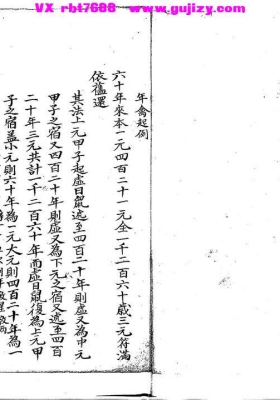 VX rbt7688 www.gujizy.com
年禽起例
六十年來本一元四百二十一元全一千二百六十歲三元符滿
依舊還
其法上元甲子起虛日鼠遞至四百二十年則虛又為中元
甲子之宿又四百二十年則虛又為下元之宿又遞至四百
二十年三元共計一千二百六十年而虛日鼠復為上元甲
子之宿盖小元則六十年為一元大元則四百二十年為一